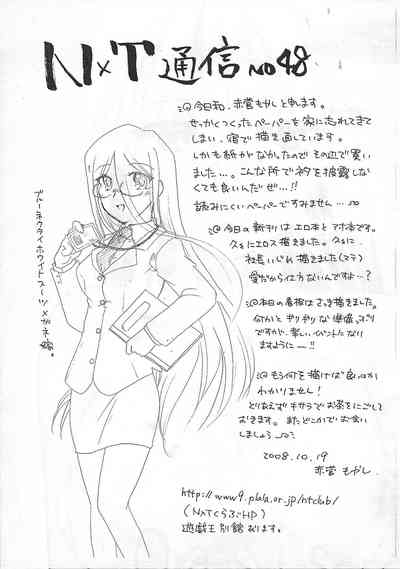 N×T通信 no48
今日和、赤菅もやしと申します。
せっかくつくったペーパーを家に忘れてきて
しまい、宿で描き直しています。
しかも紙がなかったのでその辺で買い
ました…。こんな所で衿を披露しな
くても良いんだぜ…!!
読みにくいペーパーですみません…
今日の新刊はエロ本とアホ本です。
久々にエロス描きました。久々に…
社長いじめ描きました(マテ)
愛だから仕方ないんですよ…?
本日の看板はさっき描きました。
何かとギリギリな準備っぷり
ですが、楽しいイベントになり
ますように―!!
もう何を描けば良いのか
わかりません!
とりあえずキサラでお茶をにごして
おきます。またどこかでお会い
しましょう
2008.10.19
赤菅もやし
ブルーネクライホワイトスーツ×メガネ嫁。
http://www9.plala.or.jp/ntclub/
(N×TくらぶHP)
遊戯王別館あります。